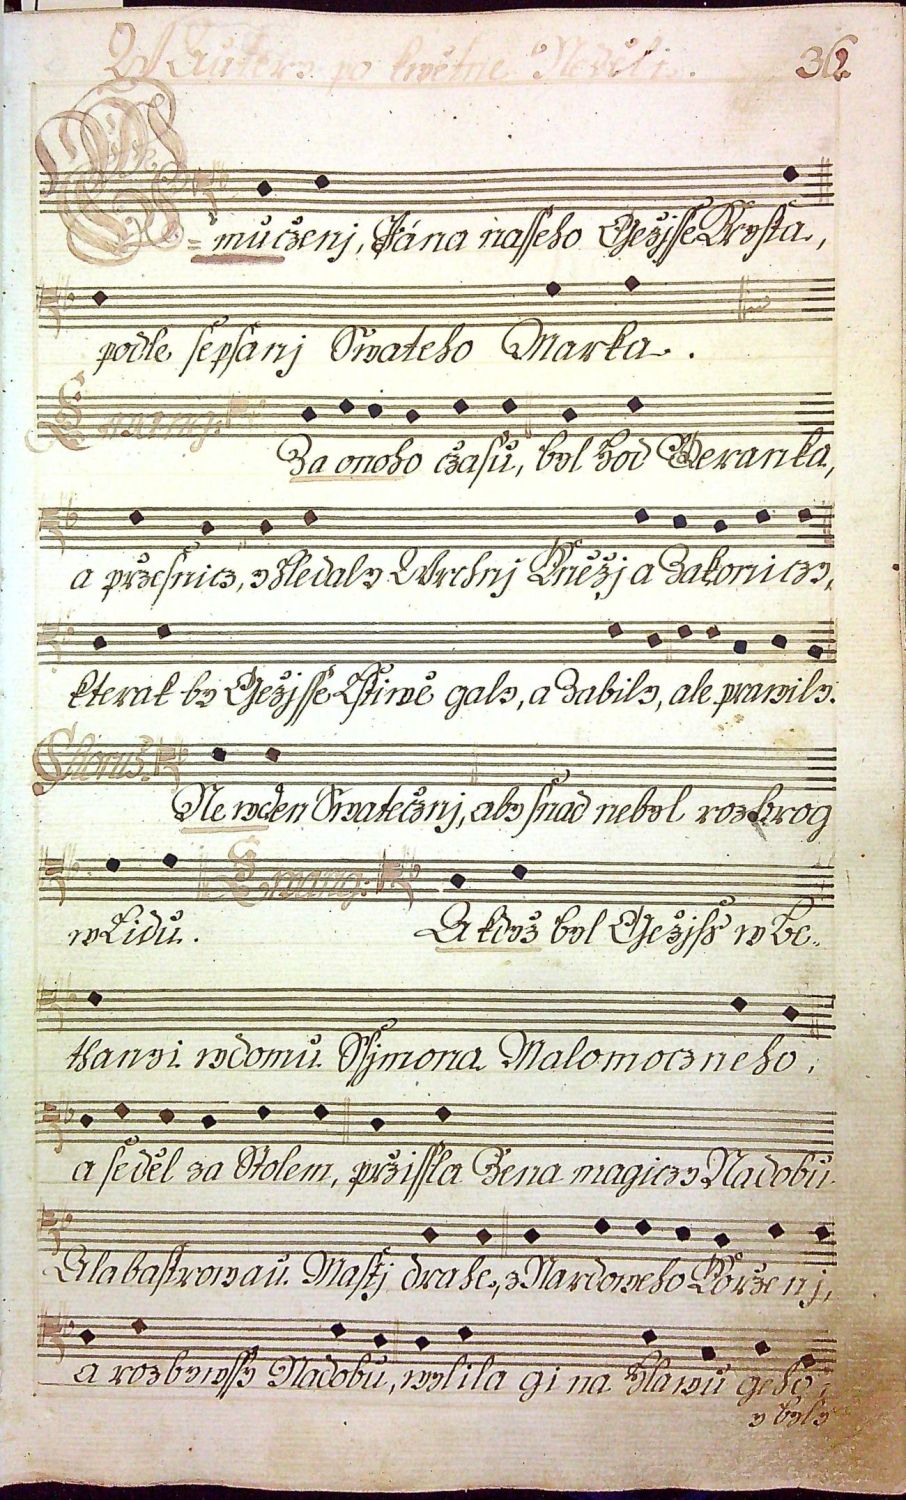 W Auterý po kwětne Neděli. 36.
Umučženj, Pána nasseho Gežjsse Krysta,
podle sepsánj Swateho Marka.
Ewang:
Za onoho čzasu, byl hod Beranka,
a przesnicz, y hledaly Wrchnj Kněžj a Zakoniczy,
kterak by Gežjsse Lstiwě galy, a zabily, ale prawily.
Chorus.
Ne w den Swatečznj, aby snad nebyl rozbrog
w Lidu. Ewang:
A když byl Gežjss w Be-
thanyi w domu Ssjmona Malomoczneho,
a seděl za Stolem, przissla Žena magiczy Nadobu
Alabastrowau Mastj drahe, z Nardoweho Korženj,
a rozbywssy Nadobu, wylila gi na hlawu geho,
y byly